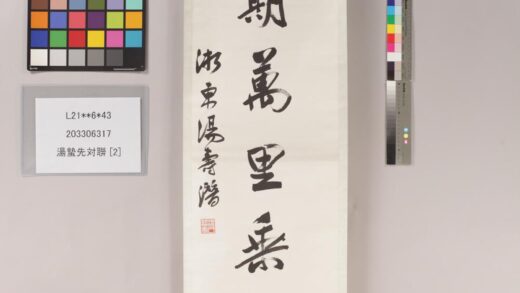 期萬里乘
浙東湯壽潛
L21**6*43
203306317
湯蟄先対聯 [2]